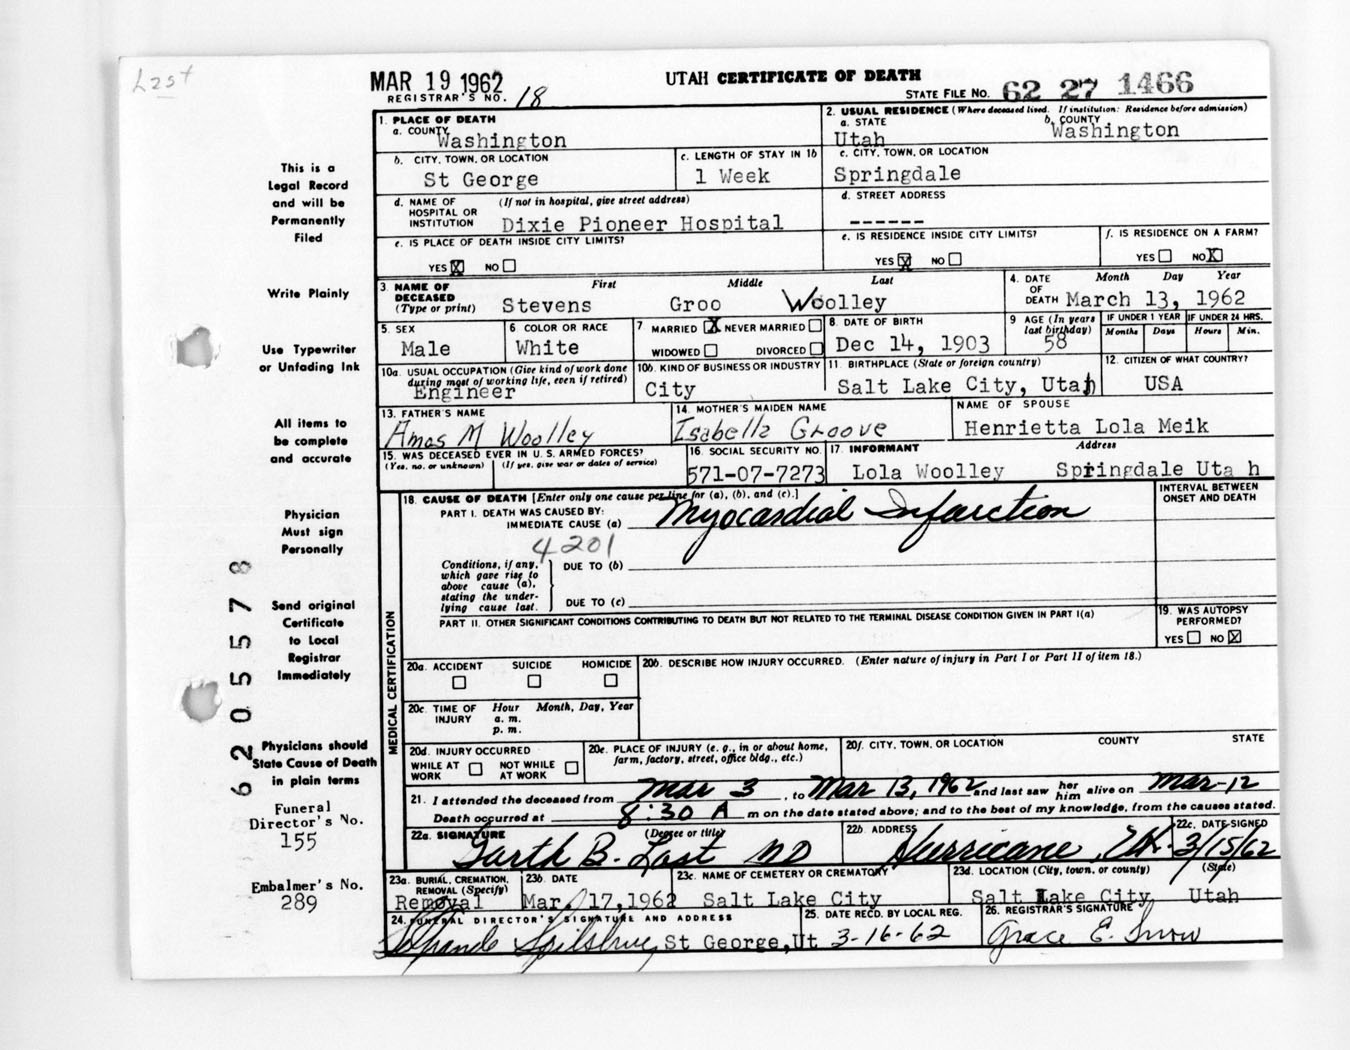 Last
MAR 19 1962
UTAH CERTIFICATE OF DEATH
REGISTRAR'S NO. 18
STATE FILE NO. 62 27 1466
This is a
Legal Record
and will be
Permanently
Filed
Write Plainly
Use Typewriter
or Unfading Ink
All items to
be complete
and accurate
Physician
Must sign
Personally
Send original
Certificate
to Local
Registrar
Immediately
Physicians should
State Cause of Death
in plain terms
Funeral
Director's No.
155
Embalmer's No.
289
62055578
1. PLACE OF DEATH
a. COUNTY
Washington
2. USUAL RESIDENCE (Where deceased lived. If institution: Residence before admission)
a. STATE b. COUNTY
Utah Washington
b. CITY, TOWN, OR LOCATION
St George
c. LENGTH OF STAY IN 1b
1 Week
c. CITY, TOWN, OR LOCATION
Springdale
d. NAME OF HOSPITAL OR INSTITUTION (If not in hospital, give street address)
Dixie Pioneer Hospital
d. STREET ADDRESS
------
e. IS PLACE OF DEATH INSIDE CITY LIMITS?
YES X NO
e. IS RESIDENCE INSIDE CITY LIMITS?
YES X NO
f. IS RESIDENCE ON A FARM?
YES NO X
3. NAME OF DECEASED (Type or print) First Middle Last
Stevens Groo Woolley
4. DATE OF DEATH Month Day Year
March 13, 1962
5. SEX
Male
6 COLOR OR RACE
White
7 MARRIED X NEVER MARRIED
WIDOWED DIVORCED
8. DATE OF BIRTH
Dec 14, 1903
9 AGE (In years last birthday)
58
IF UNDER 1 YEAR IF UNDER 24 HRS.
Months Days Hours Min.
10a. USUAL OCCUPATION (Give kind of work done during most of working life, even if retired)
Engineer
10b. KIND OF BUSINESS OR INDUSTRY
City
11. BIRTHPLACE (State or foreign country)
Salt Lake City, Utah
12. CITIZEN OF WHAT COUNTRY?
USA
13. FATHER'S NAME
Amos M Woolley
14. MOTHER'S MAIDEN NAME
Isabella Groove
NAME OF SPOUSE
Henrietta Lola Meik
15. WAS DECEASED EVER IN U.S. ARMED FORCES?
(Yes, no, or unknown) (If yes, give war or dates of service)
16. SOCIAL SECURITY NO.
571-07-7273
17. INFORMANT Address
Lola Woolley Springdale Uta h
18. CAUSE OF DEATH [Enter only one cause per line for (a), (b), and (c).]
INTERVAL BETWEEN
ONSET AND DEATH
PART I. DEATH WAS CAUSED BY:
IMMEDIATE CAUSE (a) Myocardial Infarction
4201
Conditions, if any,
which gave rise to
above cause (a),
stating the under-
lying cause last.
DUE TO (b)
DUE TO (c)
PART II. OTHER SIGNIFICANT CONDITIONS CONTRIBUTING TO DEATH BUT NOT RELATED TO THE TERMINAL DISEASE CONDITION GIVEN IN PART I(a)
19. WAS AUTOPSY
PERFORMED?
YES NO X
MEDICAL CERTIFICATION
20a. ACCIDENT SUICIDE HOMICIDE
20b. DESCRIBE HOW INJURY OCCURRED. (Enter nature of injury in Part I or Part II of item 18.)
20c. TIME OF INJURY Hour Month, Day, Year
a. m.
p. m.
20d. INJURY OCCURRED
WHILE AT WORK NOT WHILE AT WORK
20e. PLACE OF INJURY (e. g., in or about home, farm, factory, street, office bldg., etc.)
20f. CITY, TOWN, OR LOCATION COUNTY STATE
21. I attended the deceased from Mar 3, to Mar 13, 1962 and last saw her him alive on Mar-12
Death occurred at 8:30 A m on the date stated above; and to the best of my knowledge, from the causes stated.
22a. SIGNATURE (Degree or title)
Garth B. Last MD
22b. ADDRESS
Hurricane, Ut.
22c. DATE SIGNED
3/15/62
23a. BURIAL, CREMATION, REMOVAL (Specify)
Removal
23b. DATE
Mar. 17, 1962
23c. NAME OF CEMETERY OR CREMATORY
Salt Lake City
23d. LOCATION (City, town, or county) (State)
Salt Lake City Utah
24. FUNERAL DIRECTOR'S SIGNATURE AND ADDRESS
Spilsbury, St George, Ut
25. DATE RECD. BY LOCAL REG.
3-16-62
26. REGISTRAR'S SIGNATURE
Grace E. Snow